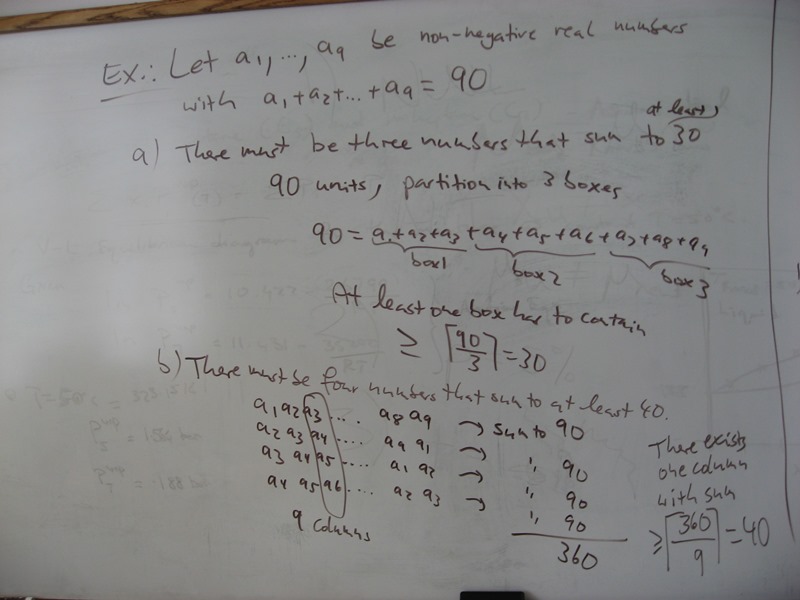 Ex.: Let a1, ..., a9 be non-negative real numbers
with a1+a2+...+a9 = 90
at least,
a) There must be three numbers that sum to 30
90 units, partition into 3 boxes
90 = a1+a2+a3 + a4+a5+a6 + a7+a8+a9
box1 box2 box3
At least one box has to contain
≥ ⌈90/3⌉ = 30
b) There must be four numbers that sum to at least 40.
a1 a2 a3 .... a8 a9 → sum to 90
a2 a3 a4 .... a9 a1 → " 90
a3 a4 a5 .... a1 a2 → " 90
a4 a5 a6 .... a2 a3 → " 90
9 columns
360
There exists
one column
with sum
≥ ⌈360/9⌉ = 40